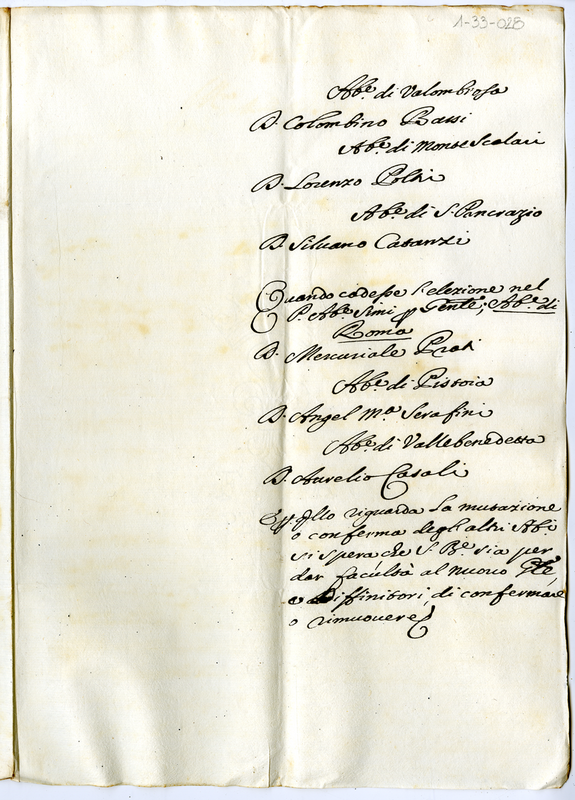 1-33-028
Abe. di Valombrosa
D. Colombino Bassi
Abe. di Monte Scalari
D. Lorenzo Poltri
Abe. di S. Pancrazio
D. Silvano Catanzi
Quando cadesse l'elezione nel
P. Abe. Sini p Genle; Abe. di
Roma
D. Mercuriale Prati
Abe. di Pistoia
D. Angel Ma. Serafini
Abe. di Vallebenedetta
D. Aurelio Casali
E p qllo riguarda la mutazione
o conferma degl'altri Abi.
si spera che S. Be. sia per
dar facultà al nuovo Gle,
e Diffinitori, di confermare
o rimuovere